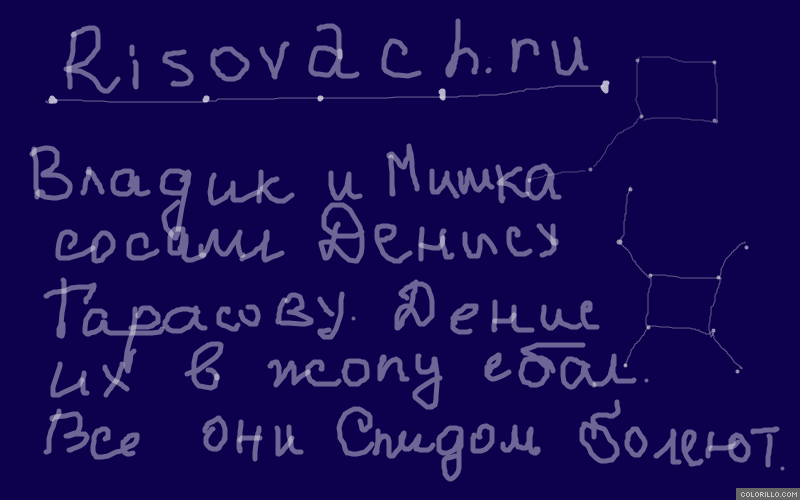 Risovach.ru
Владик и Мишка
сосали Денису
Тарасову. Денис
их в жопу ебал.
Все они Спидом болеют.
COLORILLO.COM